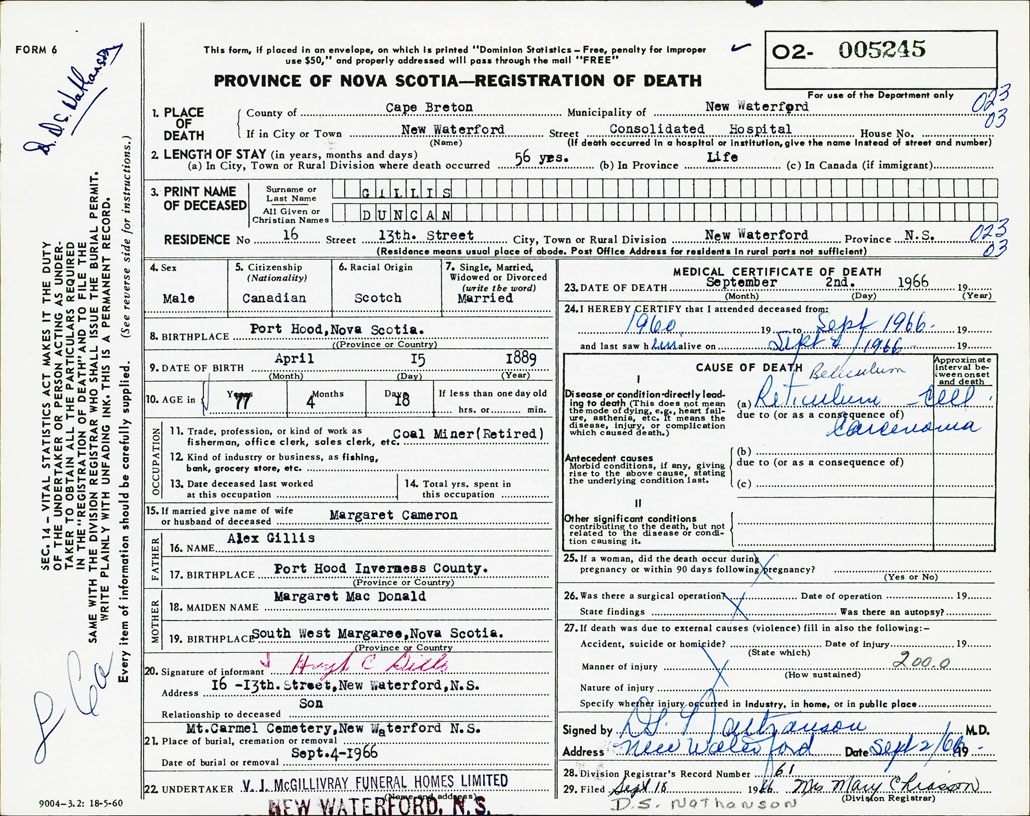 FORM 6
D. S. Nathanson
This form, if placed in an envelope, on which is printed "Dominion Statistics — Free, penalty for improper
use $50," and properly addressed will pass through the mail "FREE"
O2- 005245
PROVINCE OF NOVA SCOTIA—REGISTRATION OF DEATH
For use of the Department only
023
03
1. PLACE OF DEATH
County of Cape Breton Municipality of New Waterford
If in City or Town New Waterford Street Consolidated Hospital House No.
(Name) (If death occurred in a hospital or institution, give the name instead of street and number)
2. LENGTH OF STAY (in years, months and days)
(a) In City, Town or Rural Division where death occurred 56 yrs. (b) In Province Life (c) In Canada (if immigrant)
3. PRINT NAME OF DECEASED
Surname or Last Name GILLIS
All Given or Christian Names DUNCAN
RESIDENCE No 16 Street 13th. Street City, Town or Rural Division New Waterford Province N.S.
023
03
(Residence means usual place of abode. Post Office Address for residents in rural parts not sufficient)
4. Sex
Male
5. Citizenship
(Nationality)
Canadian
6. Racial Origin
Scotch
7. Single, Married,
Widowed or Divorced
(write the word)
Married
8. BIRTHPLACE Port Hood, Nova Scotia.
((Province or Country)
9. DATE OF BIRTH April 15 1889
(Month) (Day) (Year)
10. AGE in Years Months Days If less than one day old
77 4 18 hrs. or min.
OCCUPATION
11. Trade, profession, or kind of work as
fisherman, office clerk, sales clerk, etc. Coal Miner(Retired)
12. Kind of industry or business, as fishing,
bank, grocery store, etc.
13. Date deceased last worked
at this occupation
14. Total yrs. spent in
this occupation
15. If married give name of wife
or husband of deceased Margaret Cameron
FATHER
16. NAME Alex Gillis
17. BIRTHPLACE Port Hood Inverness County.
(Province or Country)
MOTHER
18. MAIDEN NAME Margaret Mac Donald
19. BIRTHPLACE South West Margaree, Nova Scotia.
(Province or Country)
20. Signature of informant Hugh C Gillis
Address 16 -13th. Street, New Waterford, N.S.
Relationship to deceased Son
Mt. Carmel Cemetery, New Waterford N.S.
21. Place of burial, cremation or removal
Date of burial or removal Sept.4-1966
22. UNDERTAKER V. J. McGILLIVRAY FUNERAL HOMES LIMITED
(Name and address)
NEW WATERFORD, N.S.
MEDICAL CERTIFICATE OF DEATH
23. DATE OF DEATH September 2nd. 1966 19
(Month) (Day) (Year)
24. I HEREBY CERTIFY that I attended deceased from:
1960 19 to Sept 1966 19
and last saw him alive on Sept 2/1966 19
CAUSE OF DEATH Reticulum
Approximate interval between onset and death
I
Disease or condition directly leading to death (This does not mean the mode of dying, e.g., heart failure, asthenia, etc. It means the disease, injury, or complication which caused death.)
(a) Reticulum Cell
due to (or as a consequence of)
Carcenoma
Antecedent causes
Morbid conditions, if any, giving rise to the above cause, stating the underlying condition last.
(b)
due to (or as a consequence of)
(c)
II
Other significant conditions
contributing to the death, but not related to the disease or condition causing it.
25. If a woman, did the death occur during
pregnancy or within 90 days following pregnancy?
(Yes or No)
26. Was there a surgical operation? Date of operation 19
State findings Was there an autopsy?
27. If death was due to external causes (violence) fill in also the following:—
Accident, suicide or homicide? Date of injury 19
(State which)
200.0
Manner of injury
(How sustained)
Nature of injury
Specify whether injury occurred in Industry, in home, or in public place
Signed by D. S. Nathanson M.D.
Address New Waterford Date Sept 2/66 19
28. Division Registrar's Record Number 61
29. Filed Sept 16 1966 Mrs. Mary Chiasson
(Division Registrar)
D.S. NATHANSON
SEC. 14 — VITAL STATISTICS ACT MAKES IT THE DUTY
OF THE UNDERTAKER OR PERSON ACTING AS UNDER-
TAKER TO OBTAIN ALL THE PARTICULARS REQUIRED
IN THE "REGISTRATION OF DEATH" AND TO FILE THE
SAME WITH THE DIVISION REGISTRAR WHO SHALL ISSUE THE BURIAL PERMIT.
WRITE PLAINLY WITH UNFADING INK. THIS IS A PERMANENT RECORD.
Every item of information should be carefully supplied. (See reverse side for instructions.)
9004-3.2: 18-5-60